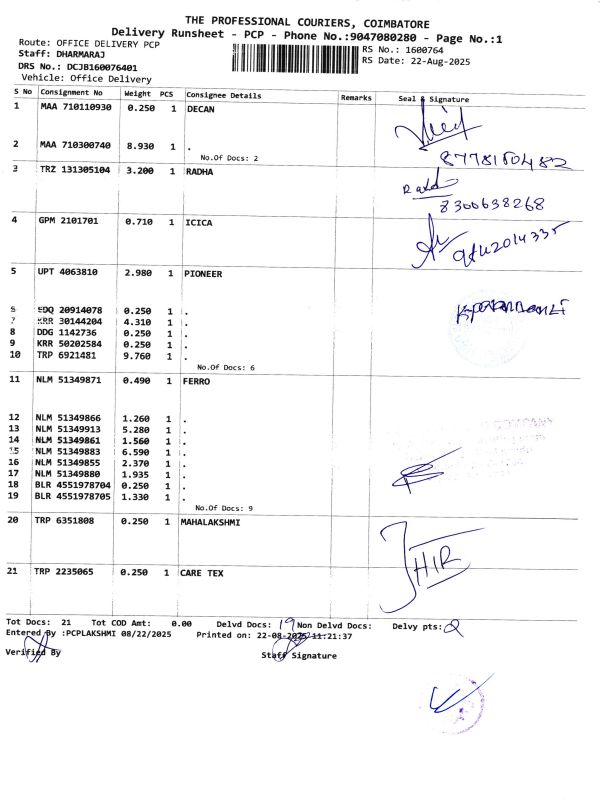 THE PROFESSIONAL COURIERS, COIMBATORE
Delivery Runsheet - PCP - Phone No.:9047080280 - Page No.:1
Route: OFFICE DELIVERY PCP
RS No.: 1600764
Staff: DHARMARAJ
RS Date: 22-Aug-2025
DRS No.: DCJB160076401
Vehicle: Office Delivery
S No Consignment No Weight PCS Consignee Details Remarks Seal & Signature
1 MAA 710110930 0.250 1 DECAN
2 MAA 710300740 8.930 1 .
No.Of Docs: 2
3 TRZ 131305104 3.200 1 RADHA
8300638268
4 GPM 2101701 0.710 1 ICICA
5 UPT 4063810 2.980 1 PIONEER
6 EDQ 20914078 0.250 1 .
7 KRR 30144204 4.310 1 .
8 DDG 1142736 0.250 1 .
9 KRR 50202584 0.250 1 .
10 TRP 6921481 9.760 1 .
No.Of Docs: 6
11 NLM 51349871 0.490 1 FERRO
12 NLM 51349866 1.260 1 .
13 NLM 51349913 5.280 1 .
14 NLM 51349861 1.560 1 .
15 NLM 51349883 6.590 1 .
16 NLM 51349855 2.370 1 .
17 NLM 51349880 1.935 1 .
18 BLR 4551978704 0.250 1 .
19 BLR 4551978705 1.330 1 .
No.Of Docs: 9
20 TRP 6351808 0.250 1 MAHALAKSHMI
21 TRP 2235065 0.250 1 CARE TEX
Tot Docs: 21 Tot COD Amt: 0.00 Delvd Docs: 19 Non Delvd Docs: Delvy pts: 2
Entered By :PCPLAKSHMI 08/22/2025 Printed on: 22-08-2025 11:21:37
Verified By Staff Signature